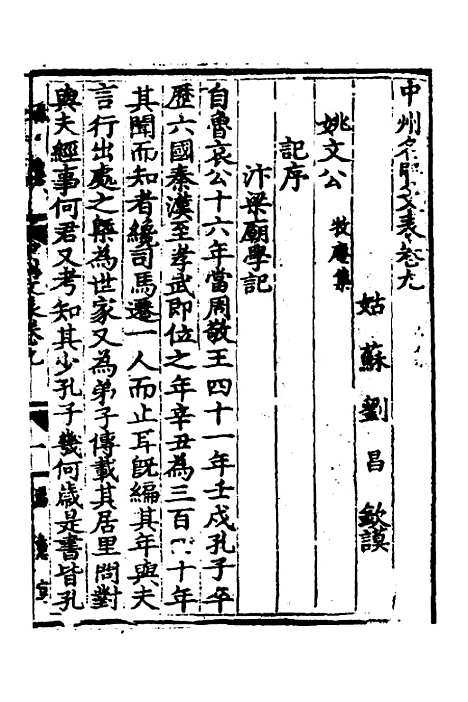 中州名賢文表卷九
姑蘇劉昌欽謨
姚文公 牧庵集
記序
汴梁廟學記
自魯哀公十六年當周敬王四十一年壬戌孔子卒
歷六國秦漢至孝武即位之年辛丑為三百 十年
其聞而知者纔司馬遷一人而止耳既編其年與夫
言行出處之槩為世家又為弟子傳載其居里問對
與夫經事何君又考知其少孔子幾何歲是書皆孔